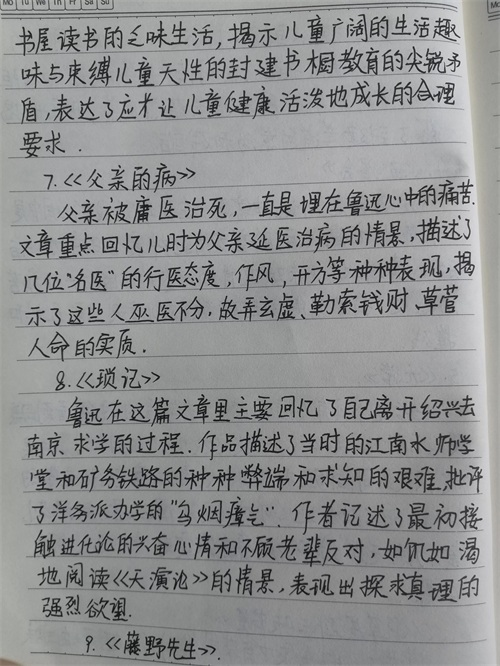 Mo Tu We Th Fr Sa Su
书屋读书的乏味生活，揭示儿童广阔的生活趣
味与束缚儿童天性的封建书橱教育的尖锐矛
盾，表达了应才让儿童健康活泼地成长的合理
要求．
7.《父亲的病》
父亲被庸医治死，一直是埋在鲁迅心中的痛苦．
文章重点回忆儿时为父亲延医治病的情景，描述了
几位“名医”的行医态度，作风，开方等种种表现，揭
示了这些人巫医不分、故弄玄虚、勒索钱财、草菅
人命的实质．
8.《琐记》
鲁迅在这篇文章里主要回忆了自己离开绍兴去
南京求学的过程．作品描述了当时的江南水师学
堂和矿务铁路的种种弊端和求知的艰难，批评
了洋务派办学的“乌烟瘴气”．作者记述了最初接
触进化论的兴奋心情和不顾老辈反对，如饥如渴
地阅读《天演论》的情景，表现出探求真理的
强烈欲望．
9.《藤野先生》．